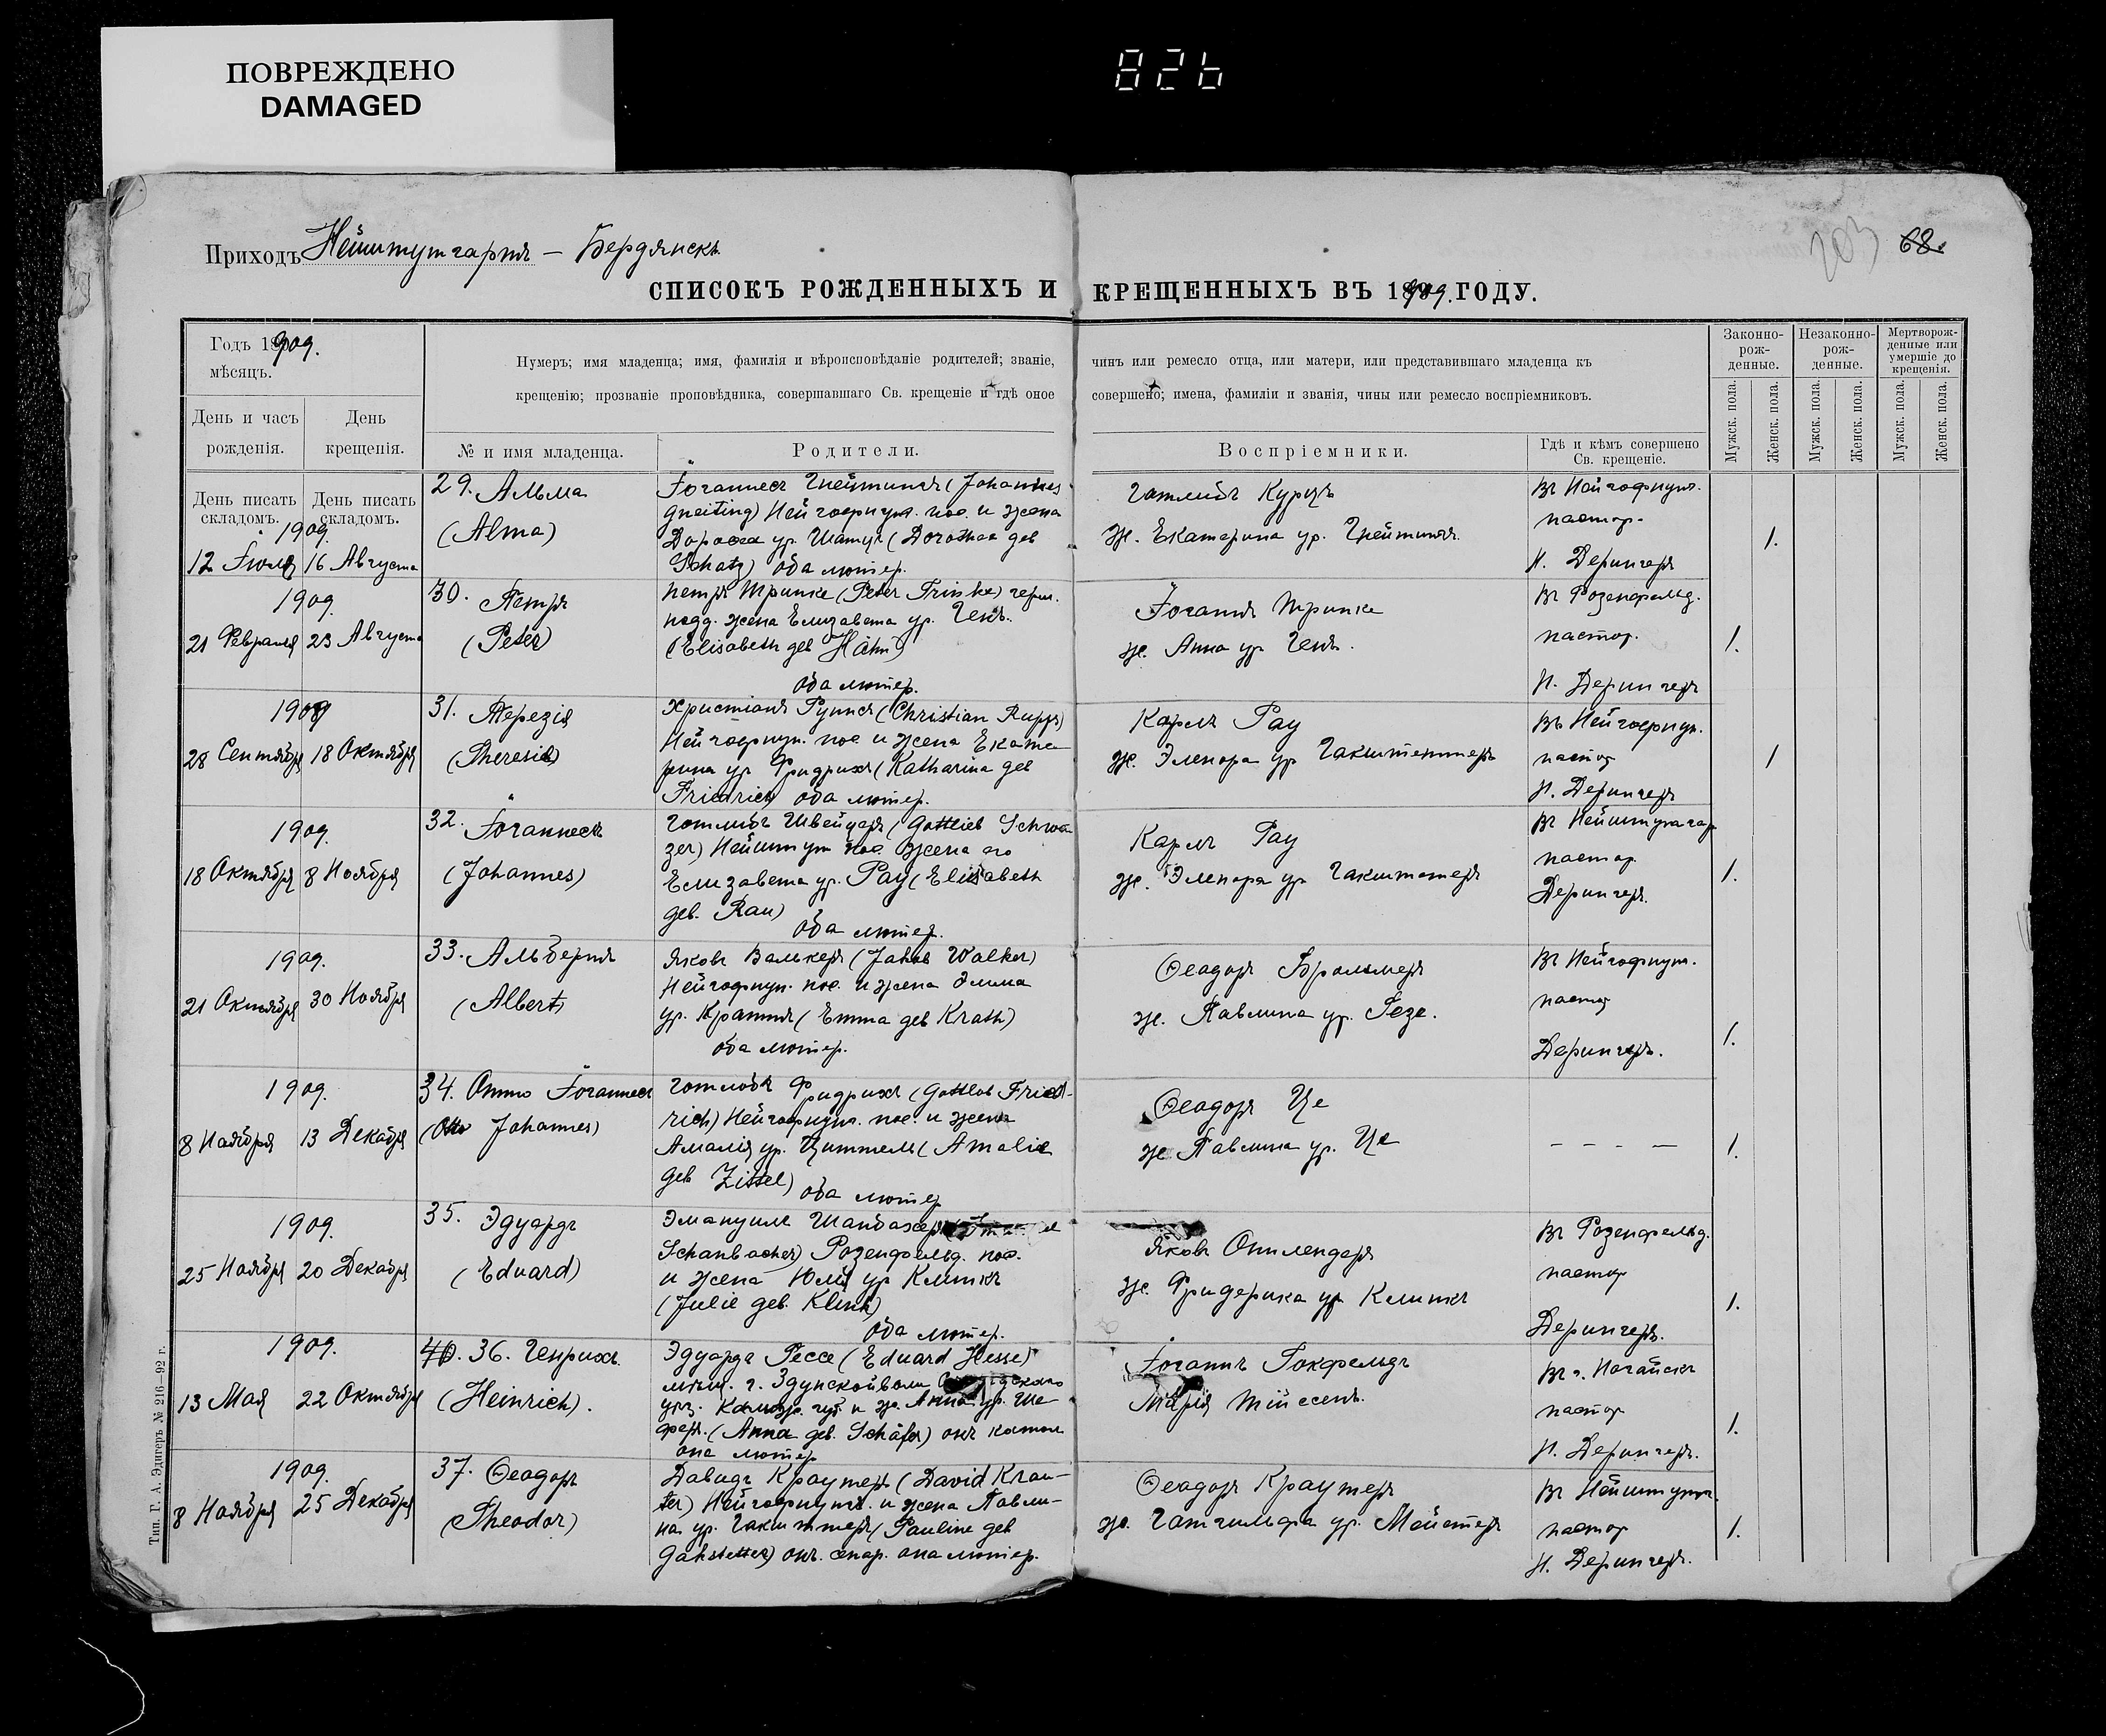 ПОВРЕЖДЕНО
DAMAGED
826
Приходъ Нейштутгартъ – Бердянскъ.
203 68.
СПИСОКЪ РОЖДЕННЫХЪ И КРЕЩЕННЫХЪ ВЪ 1909. ГОДУ.
Годъ 1909.
мѣсяцъ.
День и часъ рожденія.
День крещенія.
Нумеръ; имя младенца; имя, фамилія и вѣроисповѣданіе родителей; званіе, чинъ или ремесло отца, или матери, или представившаго младенца къ
крещенію; прозваніе проповѣдника, совершавшаго Св. крещеніе и гдѣ оное совершено; имена, фамиліи и званія, чины или ремесло воспріемниковъ.
№ и имя младенца.
Родители.
Воспріемники.
Гдѣ и кѣмъ совершено
Св. крещеніе.
Законно-
рож-
денные.
Незаконно-
рож-
денные.
Мертворож-
денные или
умершіе до
крещенія.
Мужск. пола.
Женск. пола.
Мужск. пола.
Женск. пола.
Мужск. пола.
Женск. пола.
День писать
складомъ.
День писать
складомъ.
1909.
12 Іюля
16 Августа
29. Альма
(Alma)
Іоганнесъ Гнейтингъ (Johannes
Gneiting) Нейгофнун. пос. и жена
Доротея ур. Шатцъ (Dorothea geb
Schatz) оба лютер.
Готлибъ Курцъ
ж. Екатерина ур. Гнейтингъ
Въ Нейгофнун.
пастор.
Н. Дерингеръ
1.
1909.
21 Февраля
23 Августа
30. Петръ
(Peter)
Петръ Тринке (Peter Trinke) герм.
подд. жена Елизавета ур. Генъ.
(Elisabeth geb Hahn)
оба лютер.
Іоганъ Тринке
ж. Анна ур Генъ.
Въ Розенфельд.
пастор.
Н. Дерингеръ
1.
1909
28 Сентября
18 Октября
31. Терезія
(Theresia)
Христіанъ Руппъ (Christian Rupp)
Нейгофнун. пос и жена Екате-
рина ур Фридрихъ (Katharina geb
Friedrich) оба лютер.
Карлъ Рау
ж. Элеонора ур Гакштеттеръ
Въ Нейгофнун.
пастор
Н. Дерингеръ
1
1909.
18 Октября
8 Ноября
32. Іоганнесъ
(Johannes)
Готлибъ Швейцеръ (Gottlieb Schwei
zer) Нейштут пос жена его
Елизавета ур. Рау (Elisabeth
geb. Rau)
оба лютер.
Карлъ Рау
ж. Элеонора ур Гакштетеръ
Въ Нейштутгар.
пастор
Дерингеръ.
1.
1909.
21 Октября
30 Ноября
33. Альбертъ
(Albert)
Яковъ Валькеръ (Jakob Walker)
Нейгофнун. пос. и жена Эмма
ур. Кратъ (Emma geb Krath)
оба лютер.
Ѳеодоръ
ж. Павлина ур. Гезе.
Въ Нейгофнун.
пастор
Дерингеръ.
1.
1909.
8 Ноября
13 Декабря
34. Отто Іоганнесъ
(Otto Johannes)
Готлобъ Фридрихъ (Gottlob Fried-
rich) Нейгофнун. пос. и жена
Амалія ур. Циттель (Amalie
geb Zittel) оба лютер
Ѳеодоръ Це
ж Павлина ур. Це
– – – –
1.
1909.
25 Ноября
20 Декабря
35. Эдуардъ
(Eduard)
Эмануилъ Шанбахеръ
Schanbacher) Розенфельд. пос.
и жена Юлія ур Клинкъ
(Julie geb. Klink)
оба лютер.
Яковъ Опплендеръ
ж. Фридерика ур Клинкъ
Въ Розенфельд.
пастор
Дерингеръ.
1.
1909.
13 Мая
22 Октября
40. 36. Генрихъ.
(Heinrich).
Эдуардъ Гессе (Eduard Hesse)
мѣщ. г. Здунскойволи
уѣз. Калиш. губ и ж. Анна ур. Ше-
феръ. (Anna geb. Schäfer) онъ катол
она лютер
Іоганъ Гокфельдъ
Марія Тиссенъ.
Въ г. Ногайскъ
пастор
Н. Дерингеръ.
1.
1909.
8 Ноября
25 Декабря
37. Ѳеодоръ
(Theodor)
Давидъ Краутеръ (David Krau-
ter) Нейгофнунг. и жена Павли-
на ур. Гакштетеръ (Pauline geb
Gahstetter) онъ. сепар. она лютер.
Ѳеодоръ Краутеръ
ж. Готгильфа ур. Мейстеръ
Въ Нейштутг.
пастор
Н. Дерингеръ.
1.
Тип. Г. А. Эдигеръ № 216—92 г.